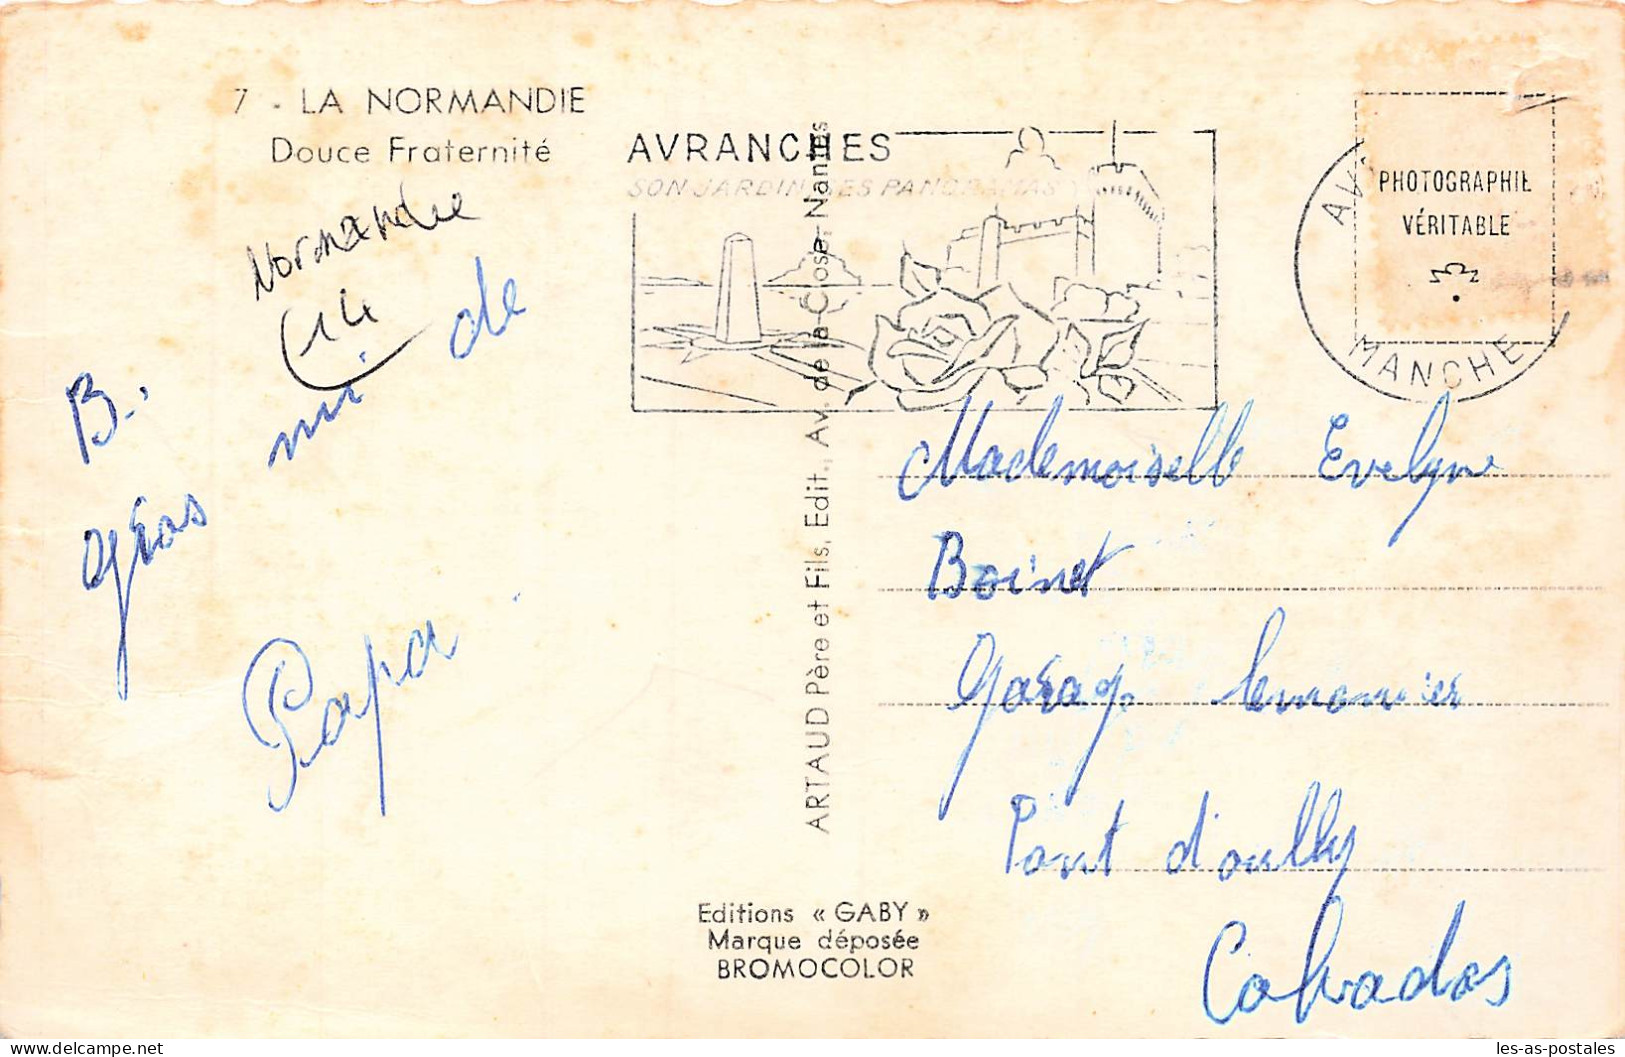 7 - LA NORMANDIE
Douce Fraternité
Normandie
B.
gros mi de
Papa
AVRANCHES
SON JARDIN, SES PANORAMAS
AV
MANCHE
PHOTOGRAPHIE
VÉRITABLE
ARTAUD Père et Fils, Edit., Av. de la Close, Nantes
Mademoiselle Evelyne
Boinet
Garage lemonnier
Pont d'ouilly
Calvados
Editions « GABY »
Marque déposée
BROMOCOLOR
les-as-postales